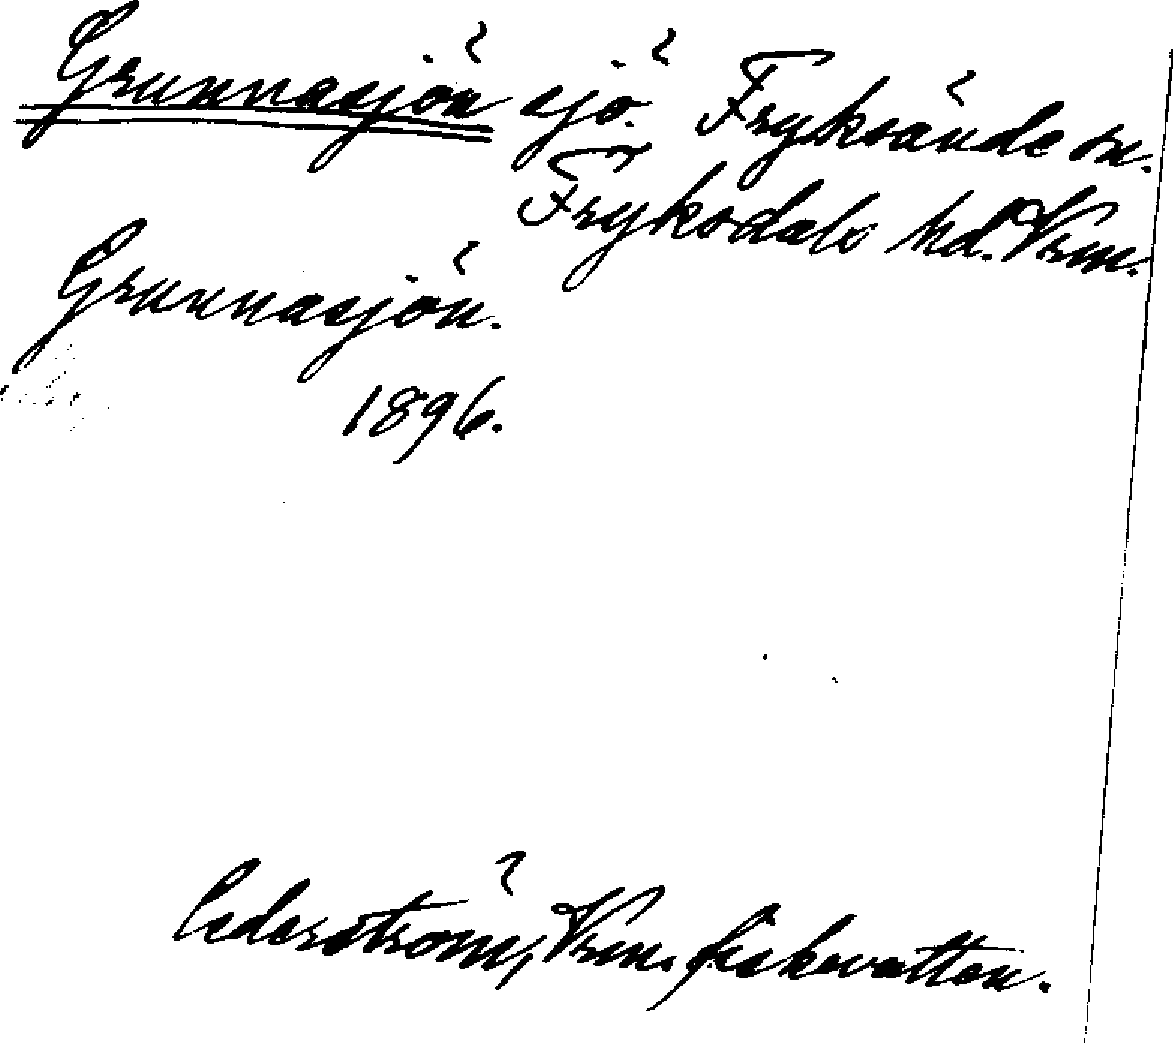 Grunnasjön sjö. Fryksände sn.
Fryksdals hd. Vrm.
Grunnasjön.
1896.
Cederström, Vrm. fiskevatten.